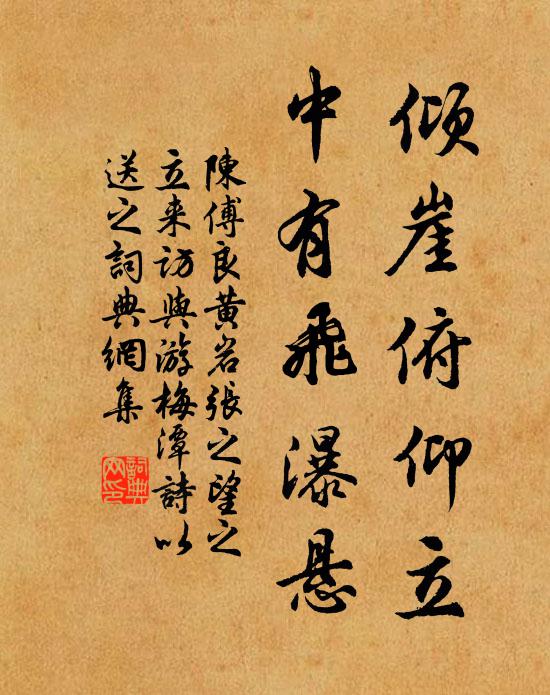 倾崖俯仰立
中有飛瀑悬
陳傅良黄岩張之望之
立来访與游梅潭詩以
送之詞典網集
詞典网印